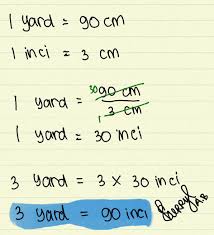 1 yard = 90 cm
1 inci = 3 cm
1 yard = 30 90 cm / 1 3 cm
1 yard = 30 inci
3 yard = 3 × 30 inci
3 yard = 90 inci